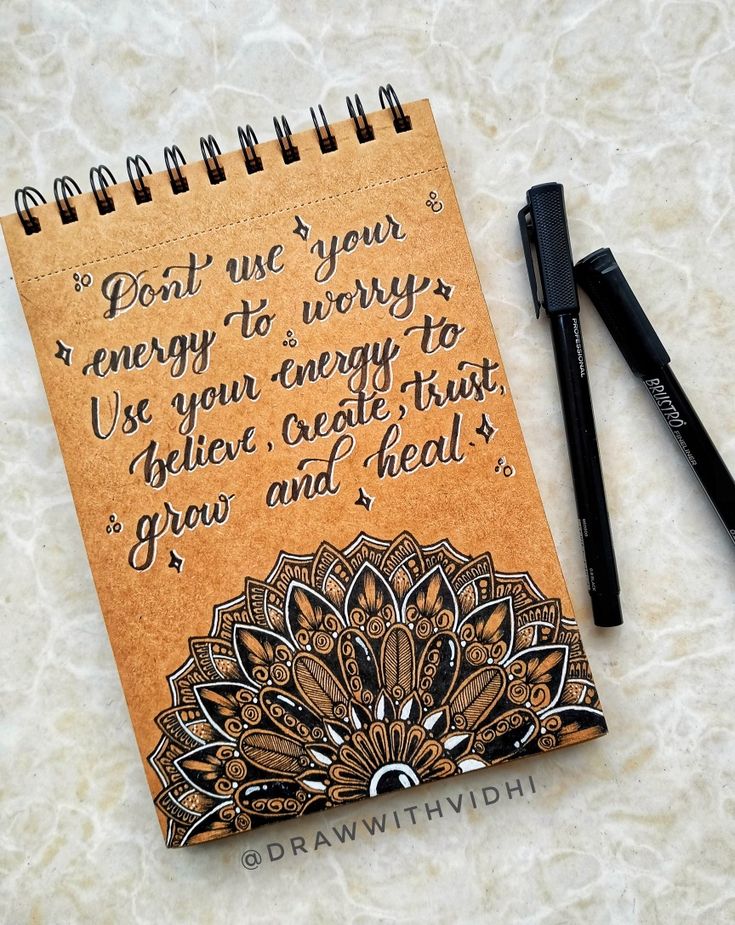 Don't use your
energy to worry
Use your energy to
believe, create, trust,
grow and heal.
PROFESSIONAL
BRUSTRO
FINELINER
@DRAWWITHVIDHI